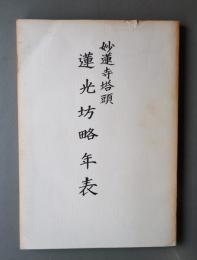 妙蓮寺塔頭
蓮光坊略年表